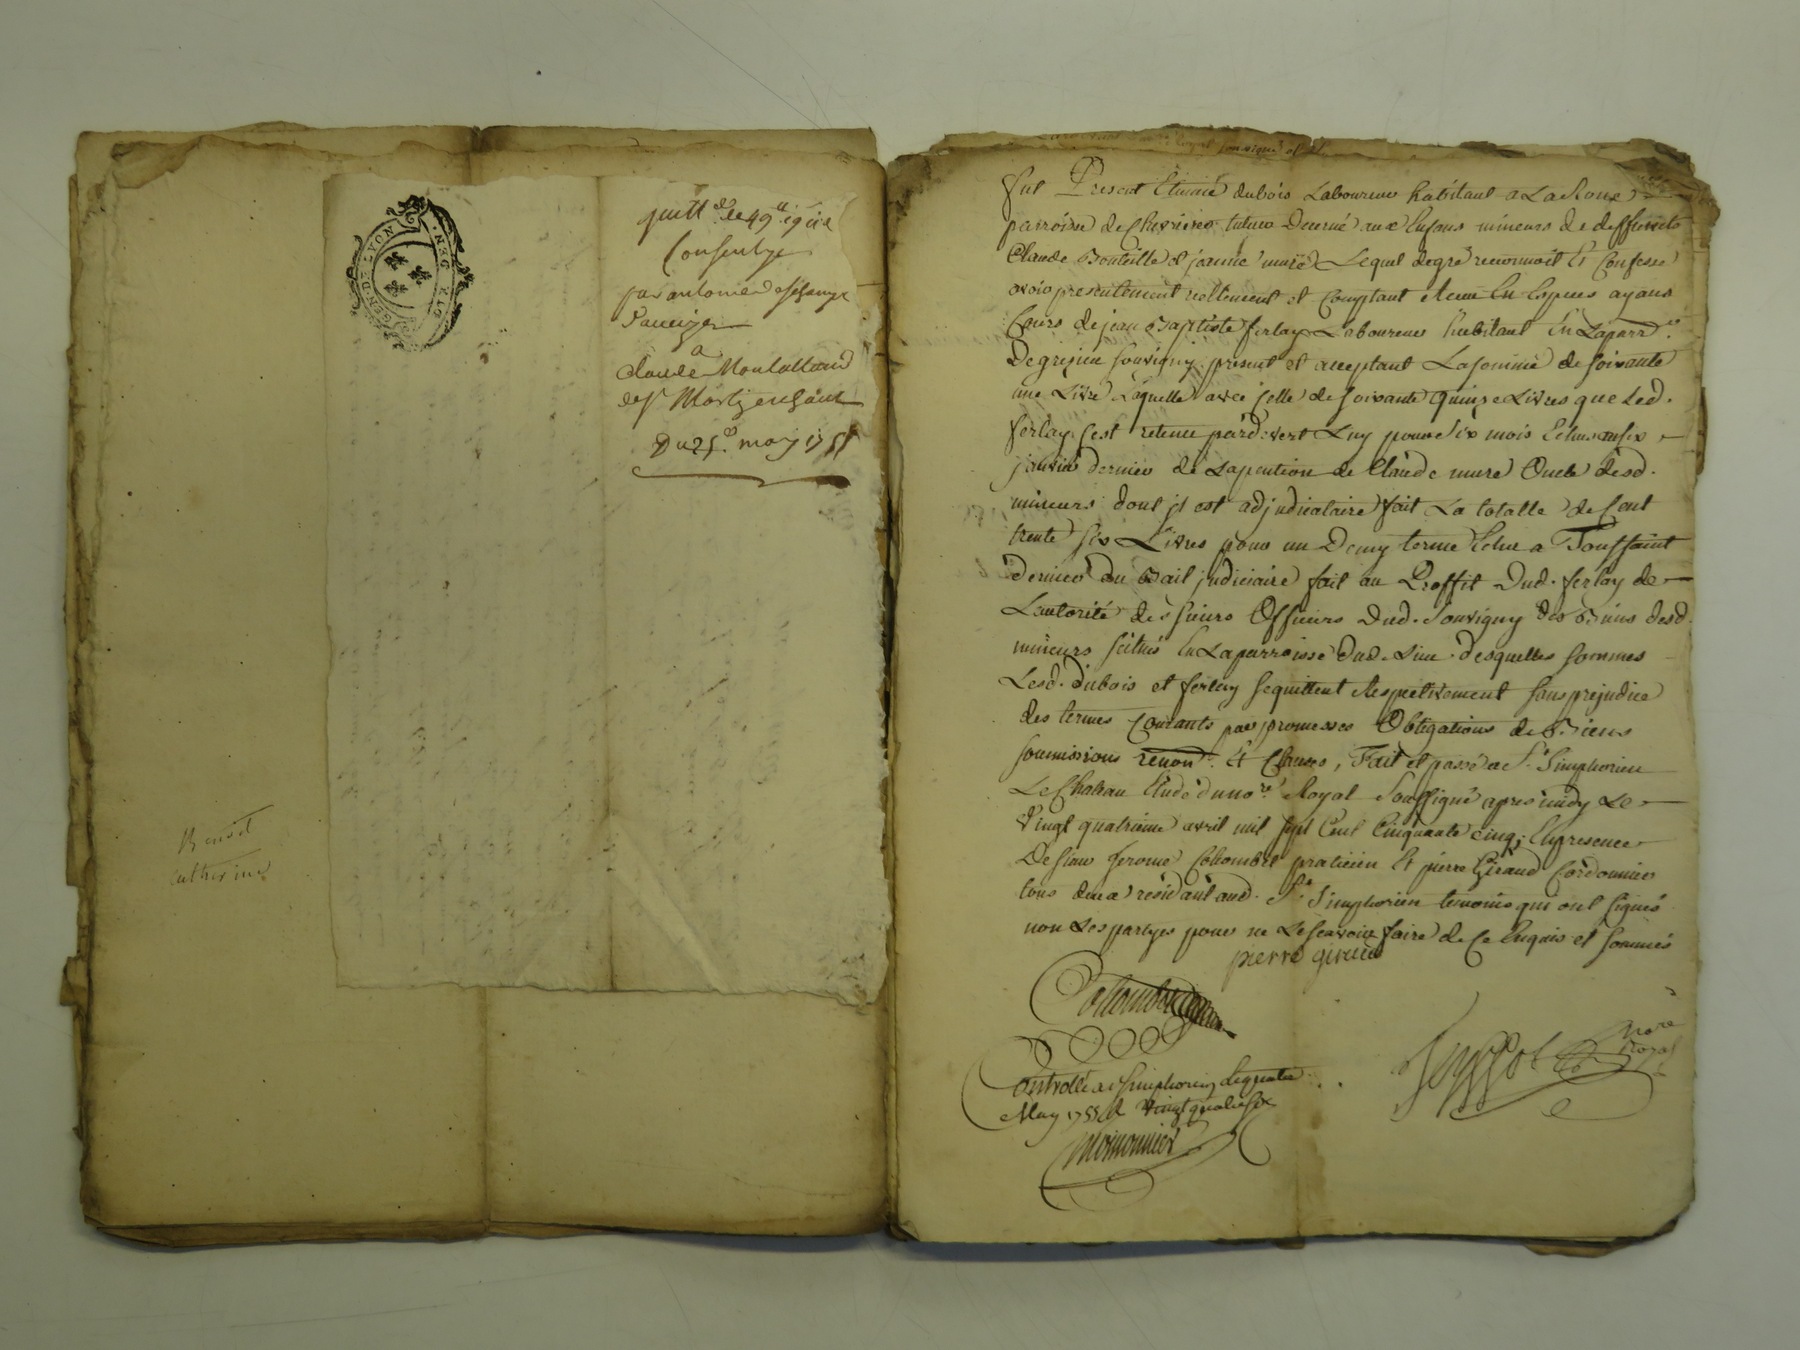 GEN. DE LYON
quitt.
Consentye
par antoine
a
Claude
Du 25. may 1755
Benoit
Catherine
fut Present Etienne dubois Laboureur habitant a La Roue
parroisse de Chevrieres tuteur Decerné aux Enfans mineurs de deffunts
Claude Bouteille et jeanne mure Lequel degré reconnoit Et Confesse
avoir presentement reellement et Comptant Receu En Especes ayans
Cours de jean Baptiste ferlay Laboureur habitant En Laparr.
De grezieu Souvigny present et acceptant La somme de soixante
une Livre Laquelle avec Celle de soixante quinze Livres que Led.
ferlay s'est retenue pard. vert Luy pour six mois Echus au six
janvier dernier de Lapention de Claude mure Oncle desd.
mineurs dont jl est adjudicataire fait La totalle de Cent
trente six Livres pour un Demy terme Echu a Toussaint
dernier du Bail judiciaire fait au Proffit Dud. ferlay de
Lautorité des sieurs Officiers Dud. Souvigny des Biens desd.
mineurs scitués En Laparroisse Dud. Lieu desquelles sommes
Lesd. dubois et ferlay se quittent Respectivement sans prejudice
des termes Courants par promesses Obligations de Biens
soumissions renon. Et Clauses, Fait et passé a St. Simphorien
Le Chateau Etude du no.re Royal Soussigné apres midy Le
Vingt quatrieme avril mil sept Cent Cinquante cinq; En presence
De sieur Jerome Collombet praticien Et pierre Giraud Cordonnier
tous deux residant aud. St. Simphorien temoins qui ont signés
non Les partyes pour ne Le scavoir faire de Ce Enquis et sommés
pierre giraud
Collombet
no.re Royal
Controllé a St Simphorien Le quatre
May 1755 R Vingt quatre sols